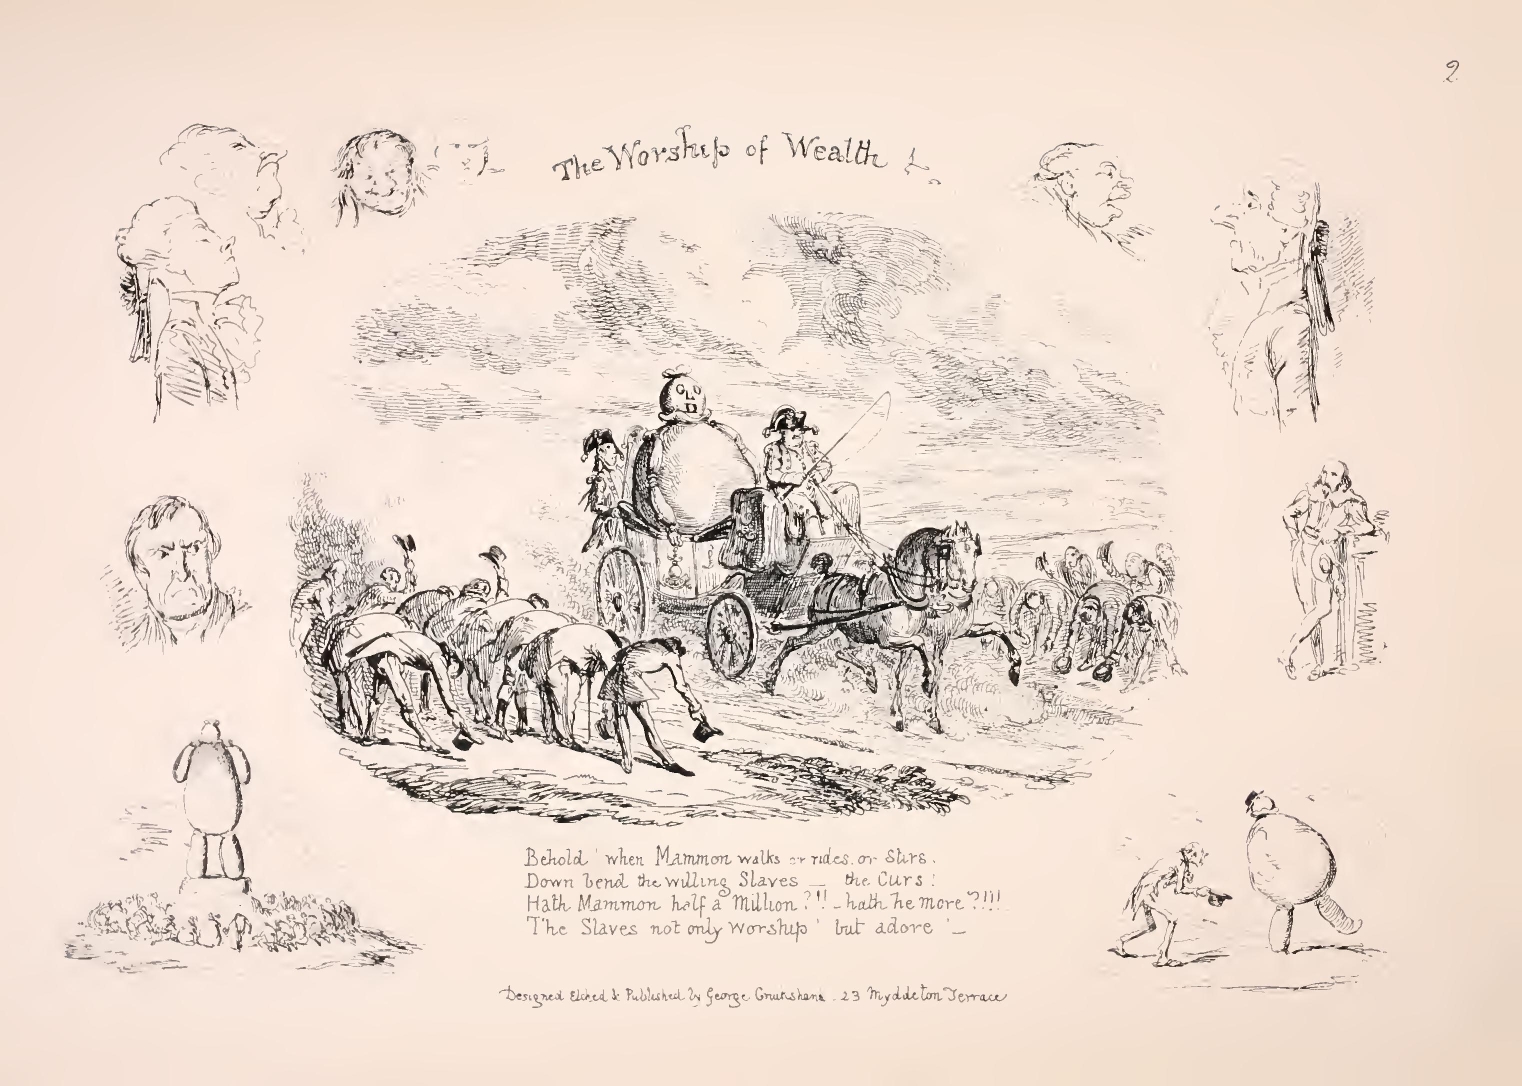 2
The Worship of Wealth!
GOLD
Behold! when Mammon walks or rides, or Stirs,
Down bend the willing Slaves — the Curs!
Hath Mammon half a Million?!! — hath he more?!!!
The Slaves not only worship! but adore! —
Designed Etched & Published by George Cruikshank . 23 Myddelton Terrace